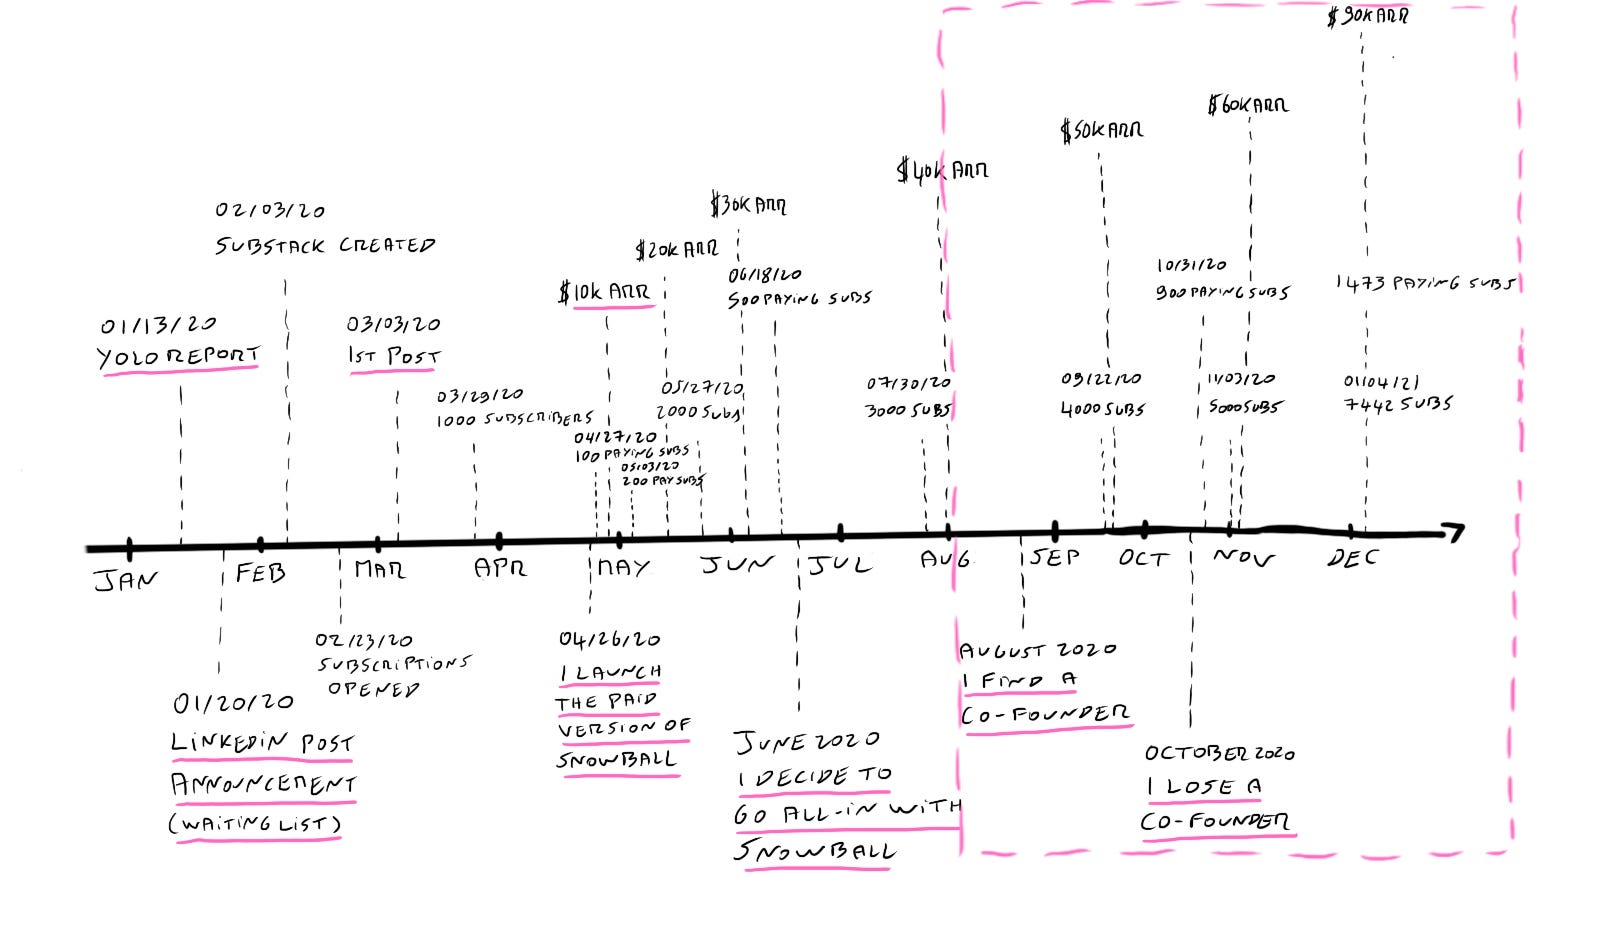 $90K ARR
$60K ARR
$50K ARR
$40K ARR
$30K ARR
$20K ARR
$10K ARR
02/03/20
SUBSTACK CREATED
01/13/20
YOLO REPORT
03/03/20
1ST POST
03/29/20
1000 SUBSCRIBERS
04/27/20
100 PAYING SUBS
05/03/20
200 PAY SUBS
05/27/20
2000 SUBS
06/18/20
500 PAYING SUBS
07/30/20
3000 SUBS
09/22/20
4000 SUBS
10/31/20
900 PAYING SUBS
11/03/20
5000 SUBS
1473 PAYING SUBS
01/04/21
7442 SUBS
JAN FEB MAR APR MAY JUN JUL AUG SEP OCT NOV DEC
01/20/20
LINKEDIN POST
ANNOUNCEMENT
(WAITING LIST)
02/23/20
SUBSCRIPTIONS
OPENED
04/26/20
I LAUNCH
THE PAID
VERSION OF
SNOWBALL
JUNE 2020
I DECIDE TO
GO ALL-IN WITH
SNOWBALL
AUGUST 2020
I FIND A
CO-FOUNDER
OCTOBER 2020
I LOSE A
CO-FOUNDER